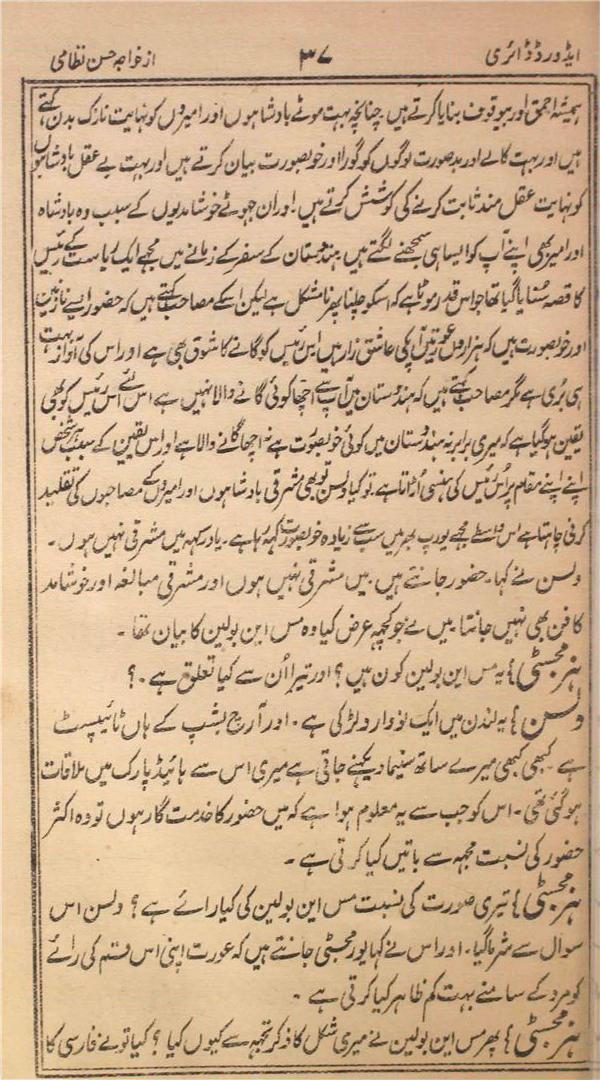 ایڈورڈ ڈائری ۳۷ از خواجہ حسن نظامی
ہمیشہ احمق اور بیوقوف بنایا کرتے ہیں چنانچہ بہت موٹے بادشاہوں اور امیروں کو نہایت نازک بدن کہتے
ہیں اور بہت کالے اور بدصورت لوگوں کو گورا اور خوبصورت بیان کرتے ہیں اور بہت بے عقل بادشاہوں
کو نہایت عقل مند ثابت کرنے کی کوشش کرتے ہیں اور ان جھوٹے خوشامدیوں کے سبب وہ بادشاہ
اور امیر بھی اپنے آپ کو ایسا ہی سمجھنے لگتے ہیں۔ ہندوستان کے سفر کے زمانے میں مجھے ایک ریاست کے رئیس
کا قصہ سُنایا گیا تھا جو اس قدر موٹا ہے کہ اسکو چلنا پھرنا مشکل ہے لیکن اسکے مصاحب کہتے ہیں کہ حضور ایسے نازنین
اور خوبصورت ہیں کہ ہزاروں عورتیں آپکی عاشق زار ہیں اس رئیس کو گانے کا شوق بھی ہے اور اس کی آواز بہت
ہی بُری ہے مگر مصاحب کہتے ہیں کہ ہندوستان میں آپ سے اچھا کوئی گانے والا نہیں ہے اس لئے اس رئیس کو بھی
یقین ہو گیا ہے کہ میری برابر نہ ہندوستان میں کوئی خوبصورت ہے نہ اچھا گانے والا ہے اور اس یقین کے سبب ہر شخص
اپنے اپنے مقام پر اُس رئیس کی ہنسی اُڑاتا ہے۔ تو کیا ولسن تو بھی مشرقی بادشاہوں اور امیروں کے مصاحبوں کی تقلید
کرنی چاہتا ہے اس واسطے مجھے یورپ بھر میں سب سے زیادہ خوبصورت کہہ رہا ہے۔ یاد رکھ میں مشرقی نہیں ہوں۔
ولسن نے کہا۔ حضور جانتے ہیں۔ میں مشرقی نہیں ہوں اور مشرقی مبالغہ اور خوشامد
کا فن بھی نہیں جانتا۔ میں نے جو کچھ عرض کیا وہ مس این بولین کا بیان تھا۔
ہز مجسٹی} یہ مس این بولین کون ہیں؟ اور تیرا اُن سے کیا تعلق ہے۔؟
ولسن} یہ لندن میں ایک نو وارد لڑکی ہے۔ اور آرچ بشپ کے ہاں ٹائیپسٹ
ہے کبھی کبھی میرے ساتھ سنیما دیکھنے جاتی ہے میری اس سے ہائیڈ پارک میں ملاقات
ہو گئی تھی۔ اس کو جب سے یہ معلوم ہوا ہے کہ میں حضور کا خدمت گار ہوں تو وہ اکثر
حضور کی نسبت مجھ سے باتیں کیا کرتی ہے۔
ہز مجسٹی} تیری صورت کی نسبت مس این بولین کی کیا رائے ہے؟ ولسن اس
سوال سے شرما گیا۔ اور اس نے کہا یور مجسٹی جانتے ہیں کہ عورت اپنی اس قسم کی رائے
کو مرد کے سامنے بہت کم ظاہر کیا کرتی ہے۔
ہز مجسٹی} پھر مس این بولین نے میری شکل کا ذکر تجھ سے کیوں کیا؟ کیا تو نے فارسی کا